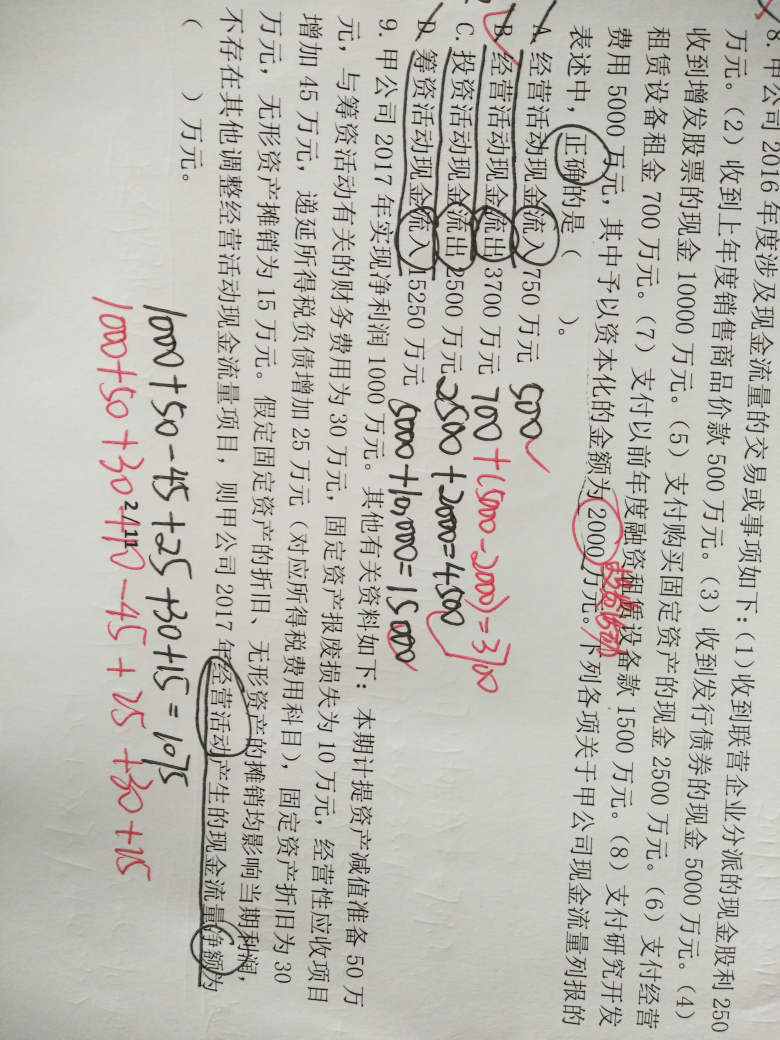 8. 甲公司 2016 年度涉及现金流量的交易或事项如下：(1)收到联营企业分派的现金股利 250
万元。(2) 收到上年度销售商品价款 500 万元。(3) 收到发行债券的现金 5000 万元。(4)
收到增发股票的现金 10000 万元。(5) 支付购买固定资产的现金 2500 万元。(6) 支付经营
租赁设备租金 700 万元。(7) 支付以前年度融资租赁设备款 1500 万元。(8) 支付研究开发
费用 5000 万元，其中予以资本化的金额为 2000 万元。下列各项关于甲公司现金流量列报的
表述中，正确的是（　　）。
A. 经营活动现金流入 750 万元 500
B. 经营活动现金流出 3700 万元 700 + (5000 - 2000) = 3700
C. 投资活动现金流出 2500 万元 2500 + 2000 = 4500
D. 筹资活动现金流入 15250 万元 5000 + 10,000 = 15000
9. 甲公司 2017 年实现净利润 1000 万元。其他有关资料如下：本期计提资产减值准备 50 万
元，与筹资活动有关的财务费用为 30 万元，固定资产报废损失为 10 万元，经营性应收项目
增加 45 万元，递延所得税负债增加 25 万元（对应所得税费用科目），固定资产折旧为 30
万元，无形资产摊销为 15 万元。假定固定资产的折旧、无形资产的摊销均影响当期利润，
不存在其他调整经营活动现金流量项目，则甲公司 2017 年经营活动产生的现金流量净额为
（　　）万元。
1000 + 50 - 45 + 25 + 30 + 15 = 1075
1000 + 50 + 30 + 10 - 45 + 25 + 30 + 15